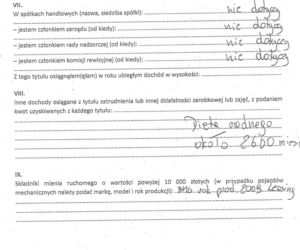 VII.
W spółkach handlowych (nazwa, siedziba spółki): nie dotyczy
– jestem członkiem zarządu (od kiedy): nie dotyczy
– jestem członkiem rady nadzorczej (od kiedy): nie dotyczy
– jestem członkiem komisji rewizyjnej (od kiedy): nie dotyczy
Z tego tytułu osiągnąłem(ęłam) w roku ubiegłym dochód w wysokości:
VIII.
Inne dochody osiągane z tytułu zatrudnienia lub innej działalności zarobkowej lub zajęć, z podaniem
kwot uzyskiwanych z każdego tytułu:
Dieta radnego
około 2600
IX.
Składniki mienia ruchomego o wartości powyżej 10 000 złotych (w przypadku pojazdów
mechanicznych należy podać markę, model i rok produkcji): rok prod. 2008 Leasing